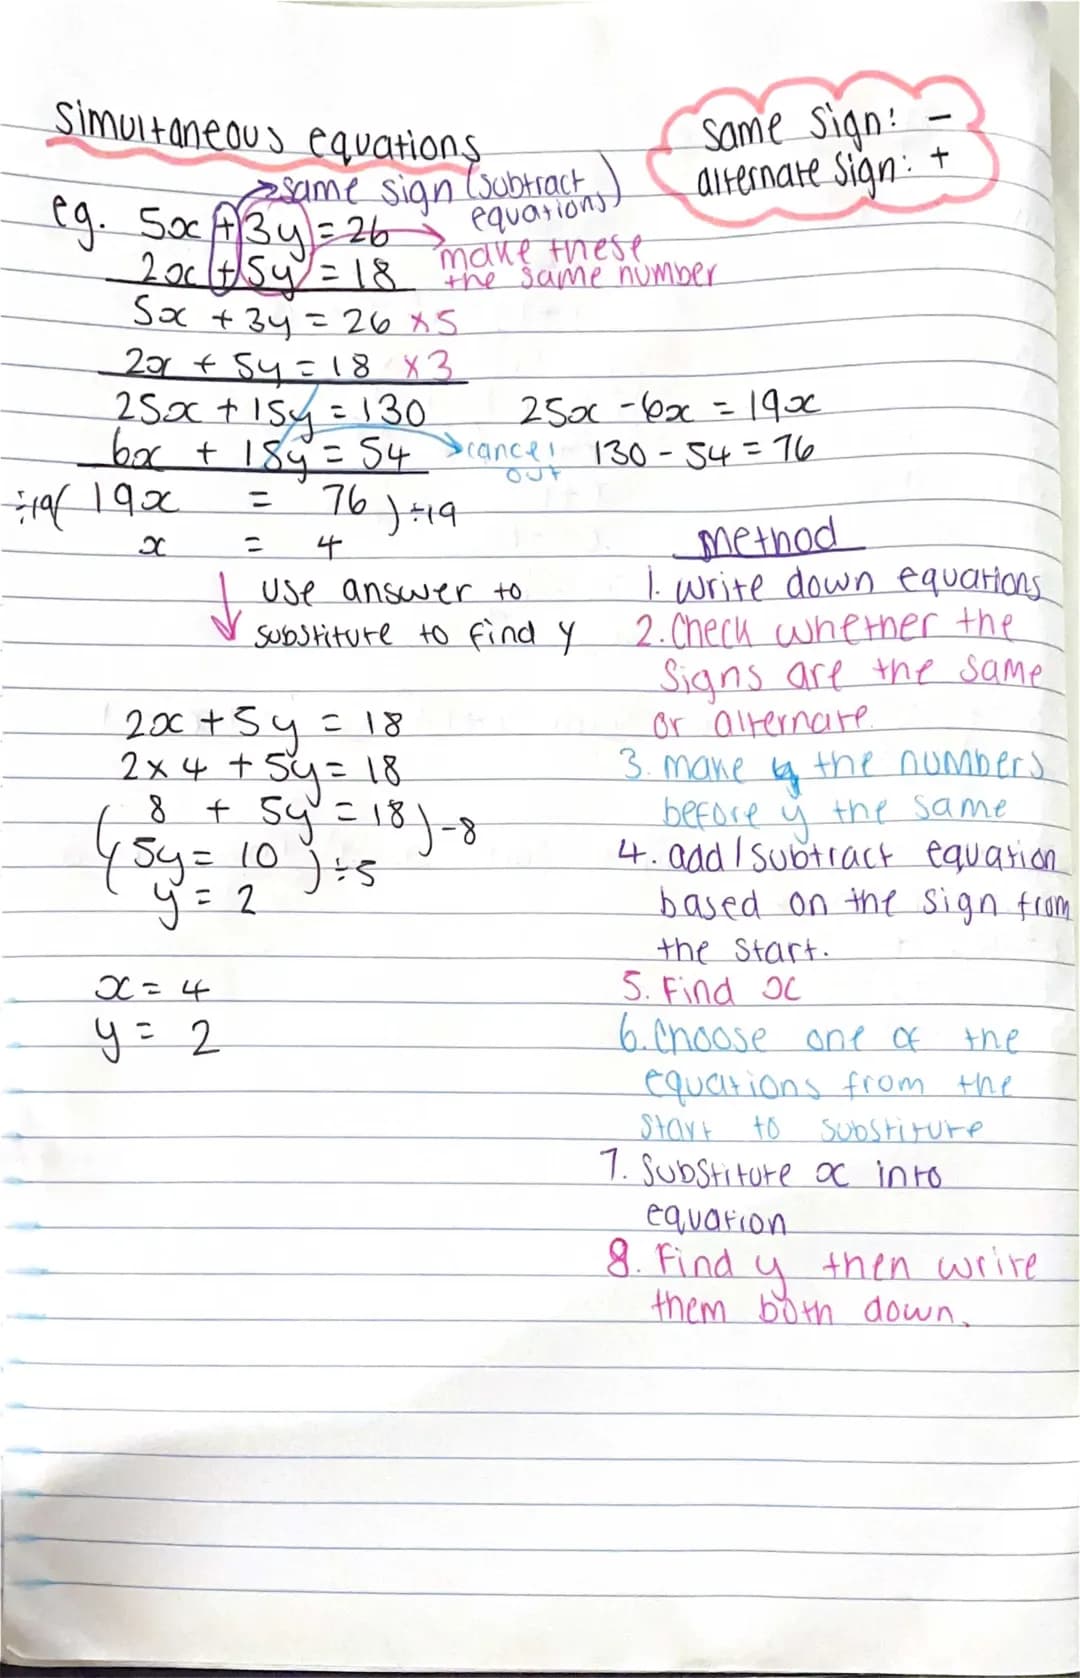 Simultaneous equations
same sign: -
alternate sign: +
same sign (subtract equations)
eg. 5x + 3y = 26
make these
2x + 5y = 18
the same number
5x + 3y = 26 ×5
2x + 5y = 18 ×3
25x + 15y = 130
25x - 6x = 19x
6x + 18y = 54
cancel out
130 - 54 = 76
÷19( 19x = 76 )÷19
x = 4
use answer to
substitute to find y
2x + 5y = 18
2 × 4 + 5y = 18
( 8 + 5y = 18 ) -8
( 5y = 10 ) ÷5
y = 2
x = 4
y = 2
method
1. write down equations
2. Check whether the
signs are the same
or alternate.
3. make the numbers
before y the same
4. add / subtract equation
based on the sign from
the start.
5. Find x
6. Choose one of the
equations from the
start to substitute
7. Substitute x into
equation
8. Find y then write
them both down.